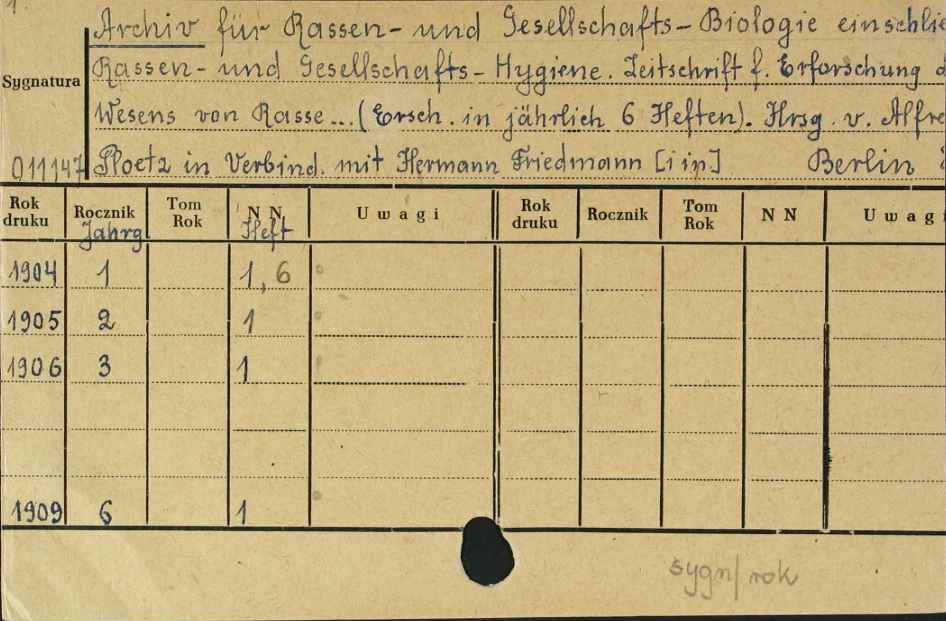 1.
Archiv für Rassen- und Gesellschafts-Biologie einschlie
Rassen- und Gesellschafts-Hygiene. Zeitschrift f. Erforschung d
Sygnatura
Wesens von Rasse...(Ersch. in jährlich 6 Heften). Hrsg. v. Alfre
011147 Ploetz in Verbind. mit Hermann Friedmann [i in] Berlin
Rok druku Rocznik Jahrg. Tom Rok N N Heft Uwagi Rok druku Rocznik Tom Rok N N Uwagi
1904 1 1, 6
1905 2 1
1906 3 1
1909 6 1
sygn/rok